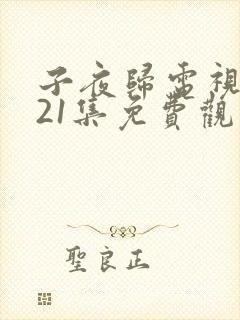 子夜歸電視
21集免費觀
聖良正